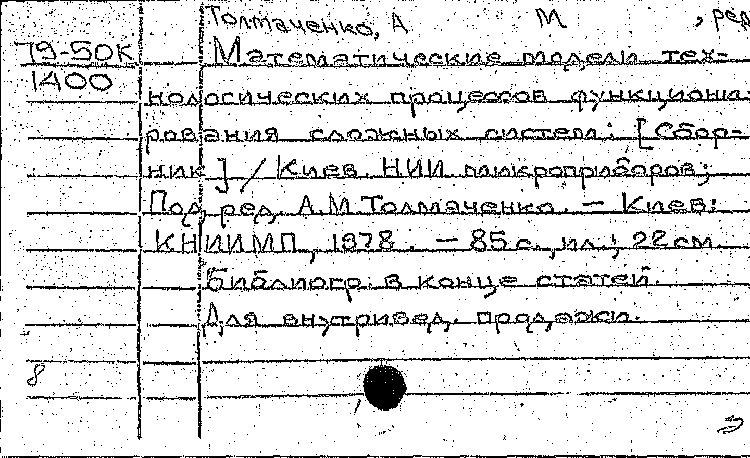 Толмаченко, А М , ред
79-50К Математические модели тех-
1400
нологических процессов функциони-
рования сложных систем: [Сбор-
ник] / Киев. НИИ микроприборов;
Под ред. А.М. Толмаченко. — Киев:
КНИИМП, 1978. — 85 с., ил.; 22 см.
Библиогр. в конце статей.
Для внутривед. продажи.
8